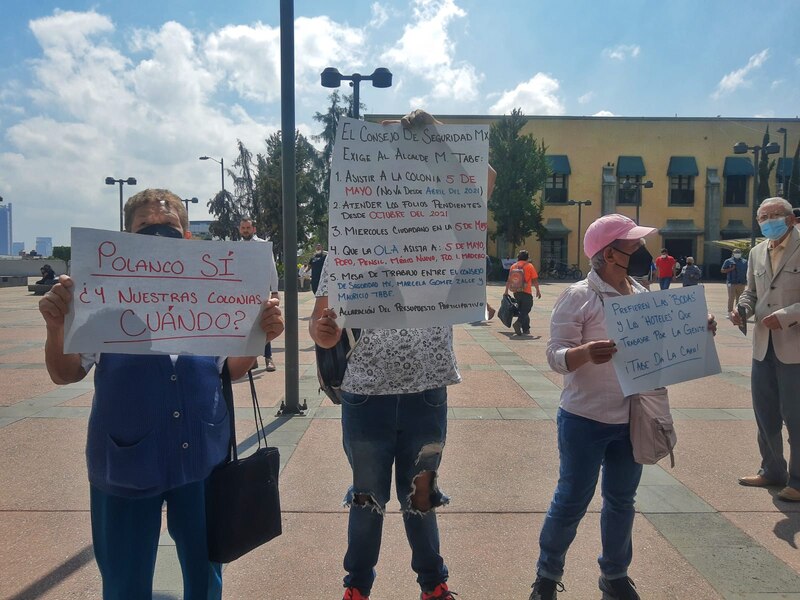 POLANCO SÍ
¿Y NUESTRAS COLONIAS
CUÁNDO?
EL CONSEJO DE SEGURIDAD MX
EXIGE AL ALCALDE M. TABE:
1. ASISTIR A LA COLONIA 5 DE
MAYO (NO VA DESDE ABRIL DEL 2021)
2. ATENDER LOS FOLIOS PENDIENTES
DESDE OCTUBRE DEL 2021
3. MIERCOLES CIUDADANO EN LA 5 DE MAYO
4. QUE LA OLA ASISTA A: 5 DE MAYO,
POPO, PENSIL, MÉXICO NUEVO, FCO. I. MADERO
5. MESA DE TRABAJO ENTRE EL CONSEJO
DE SEGURIDAD MX, MARCELA GOMEZ ZALCE Y
MAURICIO TABE.
ACLARACIÓN DEL PRESUPESTO PARTICIPATIVO
PREFIEREN LAS BODAS
Y LOS "HOTELES" QUE
TRABAJAR POR LA GENTE
¡TABE DA LA CARA!